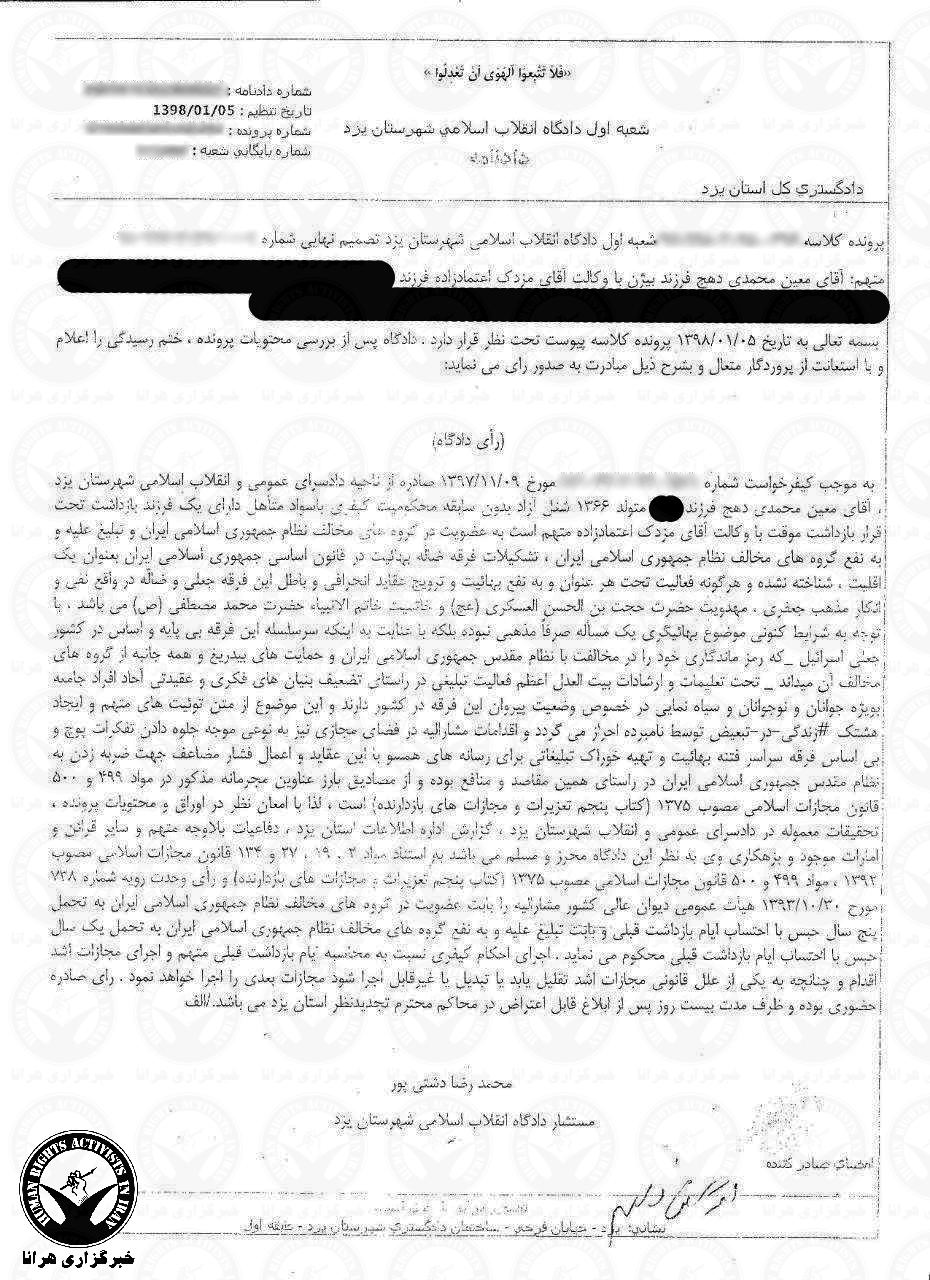 «فَلاَ تَتَّبِعُوا اَلْهَوَى أَنْ تَعْدِلُوا»
شماره دادنامه :
تاریخ تنظیم : 1398/01/05
شماره پرونده :
شماره بایگاني شعبه :
شعبه اول دادگاه انقلاب اسلامي شهرستان یزد
دادنامه
دادگستري کل استان یزد
پرونده کلاسه شعبه اول دادگاه انقلاب اسلامی شهرستان یزد تصمیم نهایی شماره
متهم: آقای معین محمدی دهج فرزند بیژن با وکالت آقای مزدک اعتمادزاده فرزند
بسمه تعالی به تاریخ ۱۳۹۸/۰۱/۰۵ پرونده کلاسه پیوست تحت نظر قرار دارد . دادگاه پس از بررسی محتویات پرونده ، ختم رسیدگی را اعلام
و با استعانت از پروردگار متعال و بشرح ذیل مبادرت به صدور رای می نماید:
(رأی دادگاه)
به موجب کیفرخواست شماره مورخ ۱۳۹۷/۱۱/۰۹ صادره از ناحیه دادسرای عمومی و انقلاب اسلامی شهرستان یزد
، آقای معین محمدی دهج فرزند متولد ۱۳۶۶ شغل آزاد بدون سابقه محکومیت کیفری باسواد متأهل دارای یک فرزند بازداشت تحت
قرار بازداشت موقت با وکالت آقای مزدک اعتمادزاده متهم است به عضویت در گروه های مخالف نظام جمهوری اسلامی ایران و تبلیغ علیه و
به نفع گروه های مخالف نظام جمهوری اسلامی ایران ، تشکیلات فرقه ضاله بهائیت در قانون اساسی جمهوری اسلامی ایران بعنوان یک
اقلیت ، شناخته نشده و هرگونه فعالیت تحت هر عنوان و به نفع بهائیت و ترویج عقاید انحرافی و باطل این فرقه جعلی و ضالّه در واقع نفی و
انکار مذهب جعفری ، مهدویت حضرت حجت بن الحسن العسکری (عج) و خاتمیت خاتم الانبیاء حضرت محمد مصطفی (ص) می باشد . با
توجه به شرایط کنونی موضوع بهائیگری یک مسأله صرفاً مذهبی نبوده بلکه با عنایت به اینکه سرسلسله این فرقه بی پایه و اساس در کشور
جعلی اسرائیل _که رمز ماندگاری خود را در مخالفت با نظام مقدس جمهوری اسلامی ایران و حمایت های بیدریغ و همه جانبه از گروه های
مخالف آن میداند _ تحت تعلیمات و ارشادات بیت العدل اعظم فعالیت تبلیغی در راستای تضعیف بنیان های فکری و عقیدتی آحاد افراد جامعه
بویژه جوانان و نوجوانان و سیاه نمایی در خصوص وضعیت پیروان این فرقه در کشور دارند و این موضوع از متن توئیت های متهم و ایجاد
هشتک #زندگی-در-تبعیض توسط نامبرده احراز می گردد و اقدامات مشارالیه در فضای مجازی نیز به نوعی موجه جلوه دادن تفکرات پوچ و
بی اساس فرقه سراسر فتنه بهائیت و تهیه خوراک تبلیغاتی برای رسانه های همسو با این عقاید و اعمال فشار مضاعف جهت ضربه زدن به
نظام مقدس جمهوری اسلامی ایران در راستای همین مقاصد و منافع بوده و از مصادیق بارز عناوین مجرمانه مذکور در مواد ۴۹۹ و ۵۰۰
قانون مجازات اسلامی مصوب ۱۳۷۵ (کتاب پنجم تعزیرات و مجازات های بازدارنده) است ، لذا با امعان نظر در اوراق و محتویات پرونده ،
تحقیقات معموله در دادسرای عمومی و انقلاب شهرستان یزد ، گزارش اداره اطلاعات استان یزد ، دفاعیات بلاوجه متهم و سایر قرائن و
امارات موجود و بزهکاری وی به نظر این دادگاه محرز و مسلم می باشد به استناد مواد ۲ ، ۱۹ ، ۲۷ و ۱۳۴ قانون مجازات اسلامی مصوب
۱۳۹۲ ، مواد ۴۹۹ و ۵۰۰ قانون مجازات اسلامی مصوب ۱۳۷۵ (کتاب پنجم تعزیرات و مجازات های بازدارنده) و رأی وحدت رویه شماره ۷۳۸
مورخ ۱۳۹۳/۱۰/۳۰ هیأت عمومی دیوان عالی کشور مشارالیه را بابت عضویت در گروه های مخالف نظام جمهوری اسلامی ایران به تحمل
پنج سال حبس با احتساب ایام بازداشت قبلی و بابت تبلیغ علیه و به نفع گروه های مخالف نظام جمهوری اسلامی ایران به تحمل یک سال
حبس با احتساب ایام بازداشت قبلی محکوم می نماید . اجرای احکام کیفری نسبت به محاسبه ایام بازداشت قبلی متهم و اجرای مجازات اشد
اقدام و چنانچه به یکی از علل قانونی مجازات اشد تقلیل یابد یا تبدیل یا غیرقابل اجرا شود مجازات بعدی را اجرا خواهد نمود . رای صادره
حضوری بوده و ظرف مدت بیست روز پس از ابلاغ قابل اعتراض در محاکم محترم تجدیدنظر استان یزد می باشد./الف
محمد رضا دشتی پور
مستشار دادگاه انقلاب اسلامی شهرستان یزد
امضاي صادر کننده
نشانی: یزد - خیابان فرخی - ساختمان دادگستري شهرستان یزد - طبقه اول
HUMAN RIGHTS ACTIVISTS IN IRAN
خبرگزاری هرانا